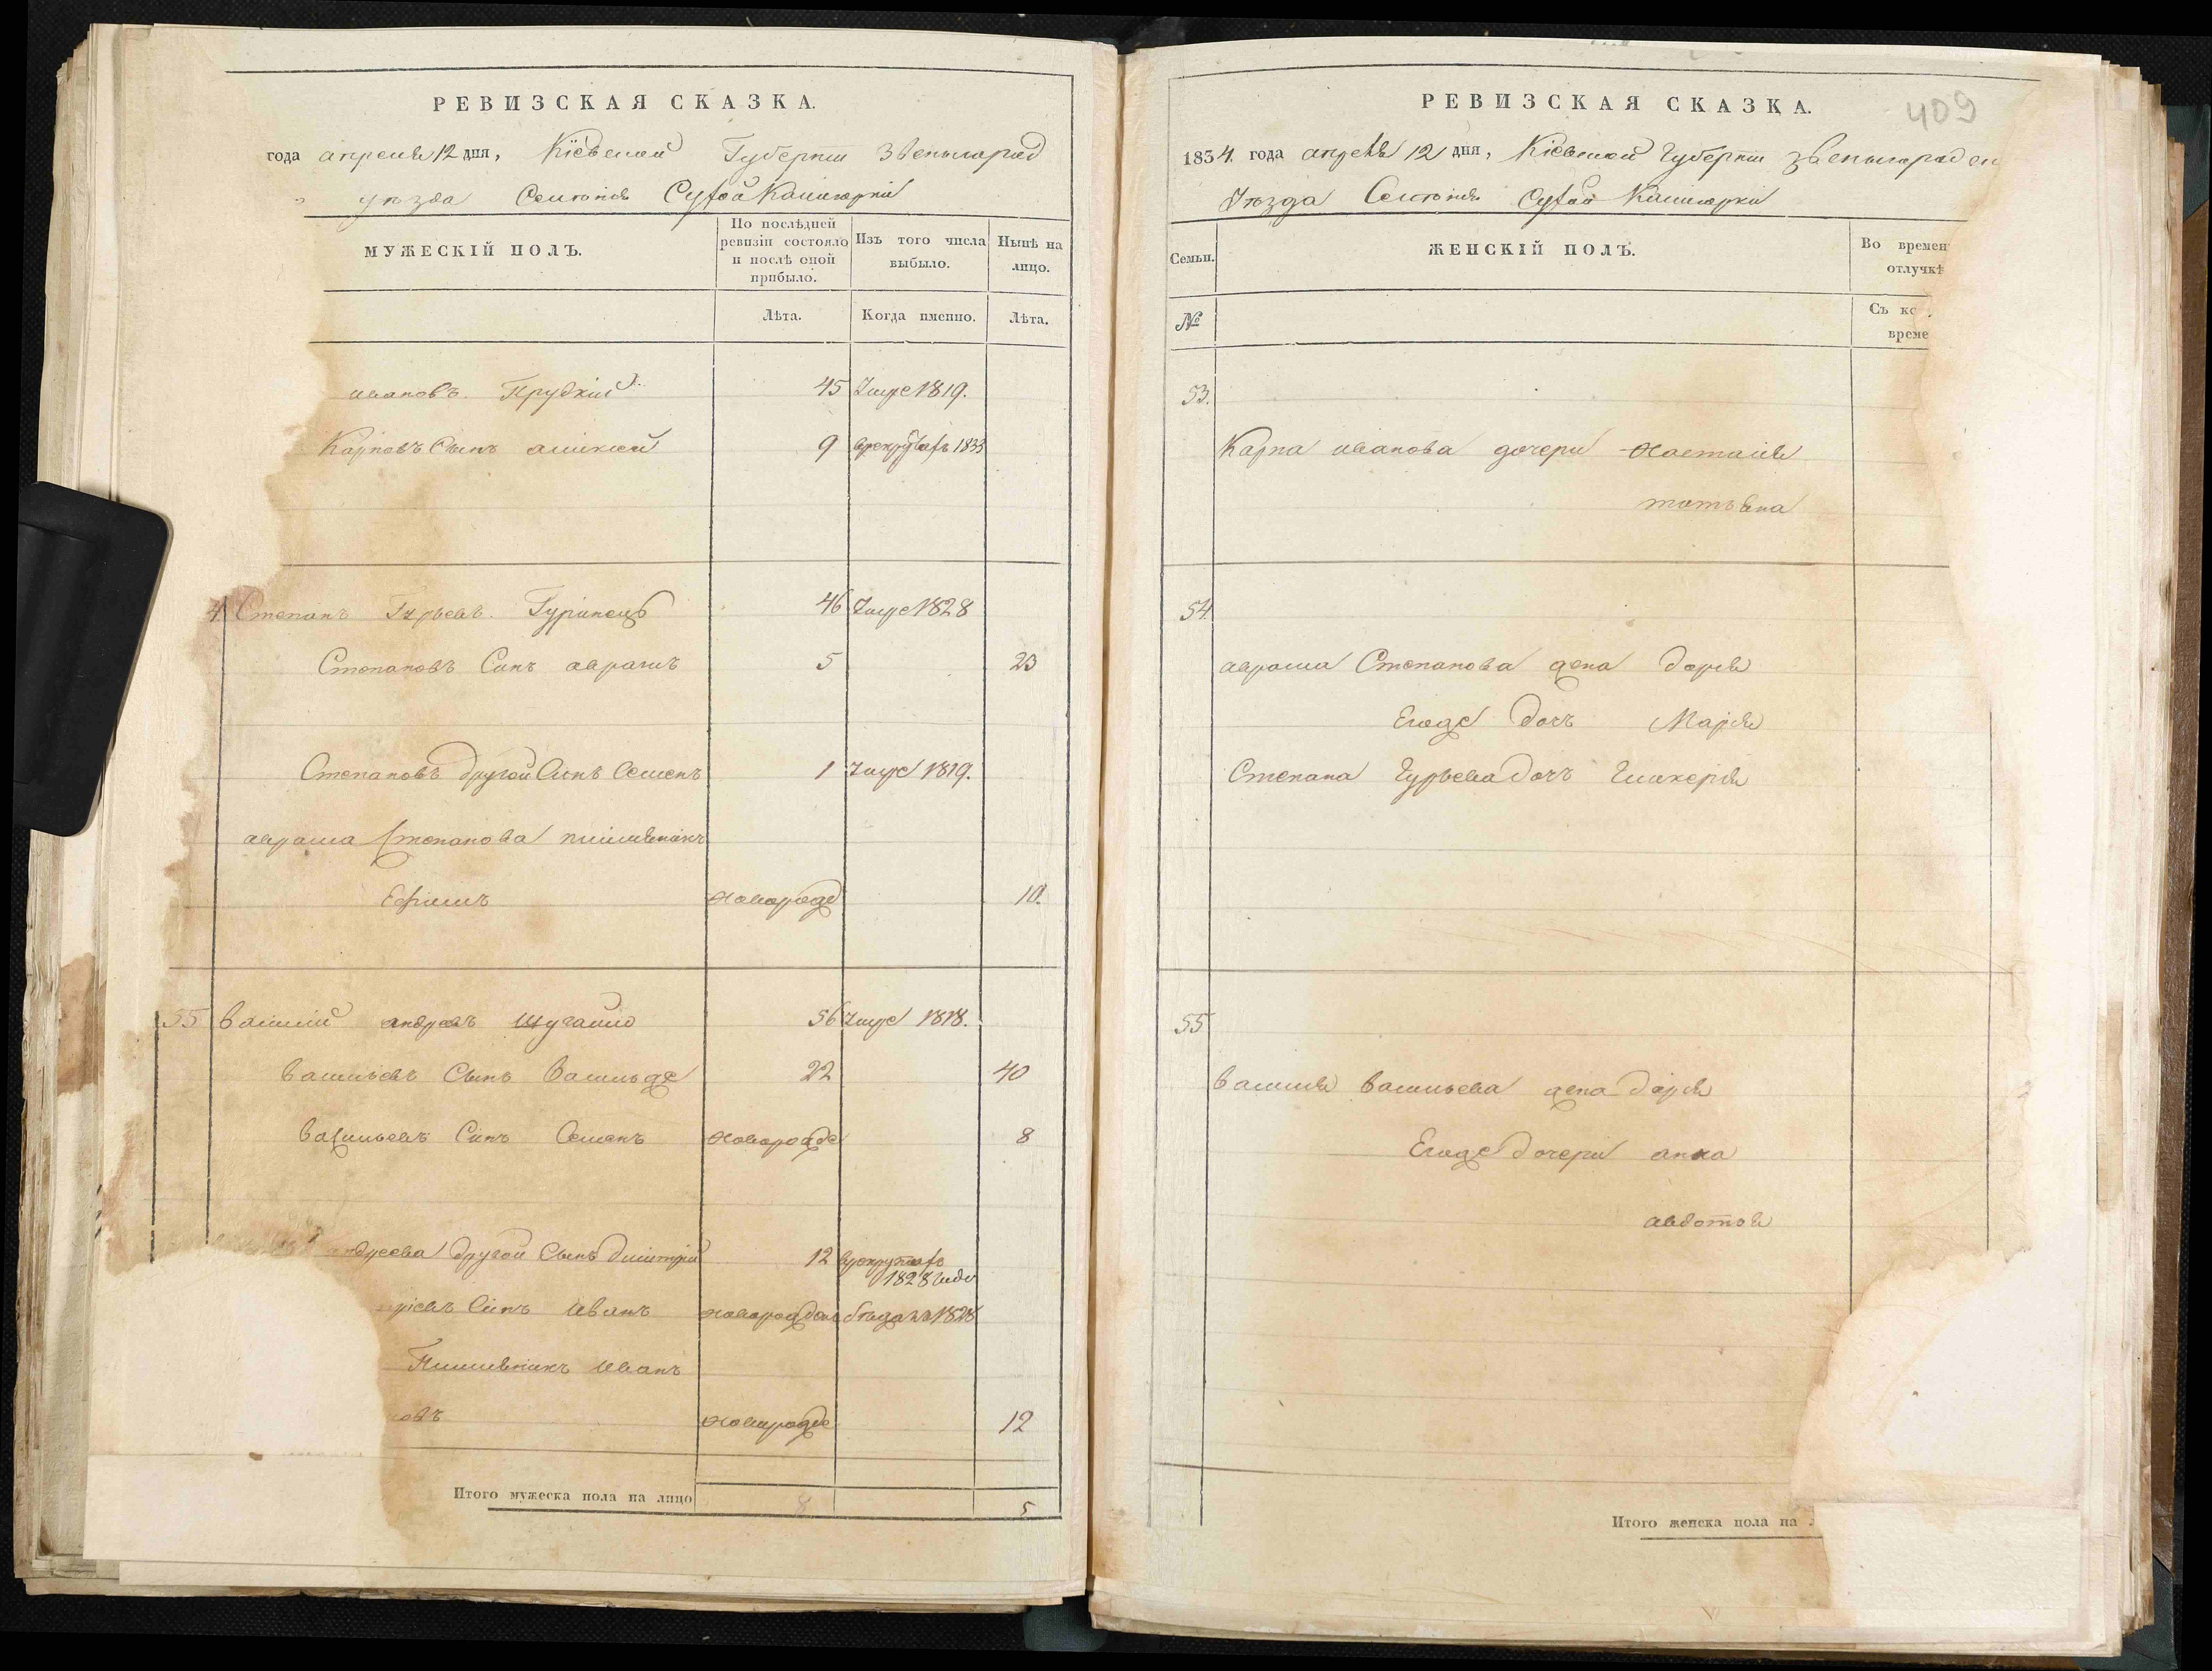 РЕВИЗСКАЯ СКАЗКА.
года апреля 12 дня, Кіевской Губерніи Звенигород
уѣзда Селенія Сухой Калигорки
МУЖЕСКІЙ ПОЛЪ.
По послѣдней ревизіи состояло и послѣ оной прибыло.
Изъ того числа выбыло.
Нынѣ на лицо.
Лѣта.
Когда именно.
Лѣта.
ивановъ Прудкий 45 умре 1819.
Карповъ Сынъ алексей 9 врекрутахъ 1833
4 Степанъ Гурьевъ Гуринецъ 46 умре 1828
Степановъ Синъ аврамъ 5 23
Степановъ другой Синъ Семенъ 1 умре 1819.
аврама Степанова племянникъ
Ефимъ новорож 10.
55 василий андреевъ 56 умре 1818.
васильевъ Сынъ Василь же 22 40
васильевъ Синъ Семенъ новорожде 8
ндреева другой Сынъ дмитрий 12 врекрутахъ
1828 года
рієвъ Синъ иванъ новорожден бежалъ 1828
Племянникъ иванъ
овъ новорожде 12
Итого мужеска пола на лицо 8 5
409
РЕВИЗСКАЯ СКАЗКА.
1834. года апреля 12 дня, Кіевской Губерніи звенигородск
Уѣзда Селенія Сухой Калигорки
Семьи.
ЖЕНСКІЙ ПОЛЪ.
Во времен
отлучкѣ
№
Съ ко
време
53.
Карпа иванова дочери Настасия
татьяна
54.
аврама Степанова жена дарья
Егоже дочь Марья
Степана Гурьева дочь Гликерия
55
василия васильева жена дарья
Егоже дочери анна
авдотья
Итого женска пола на